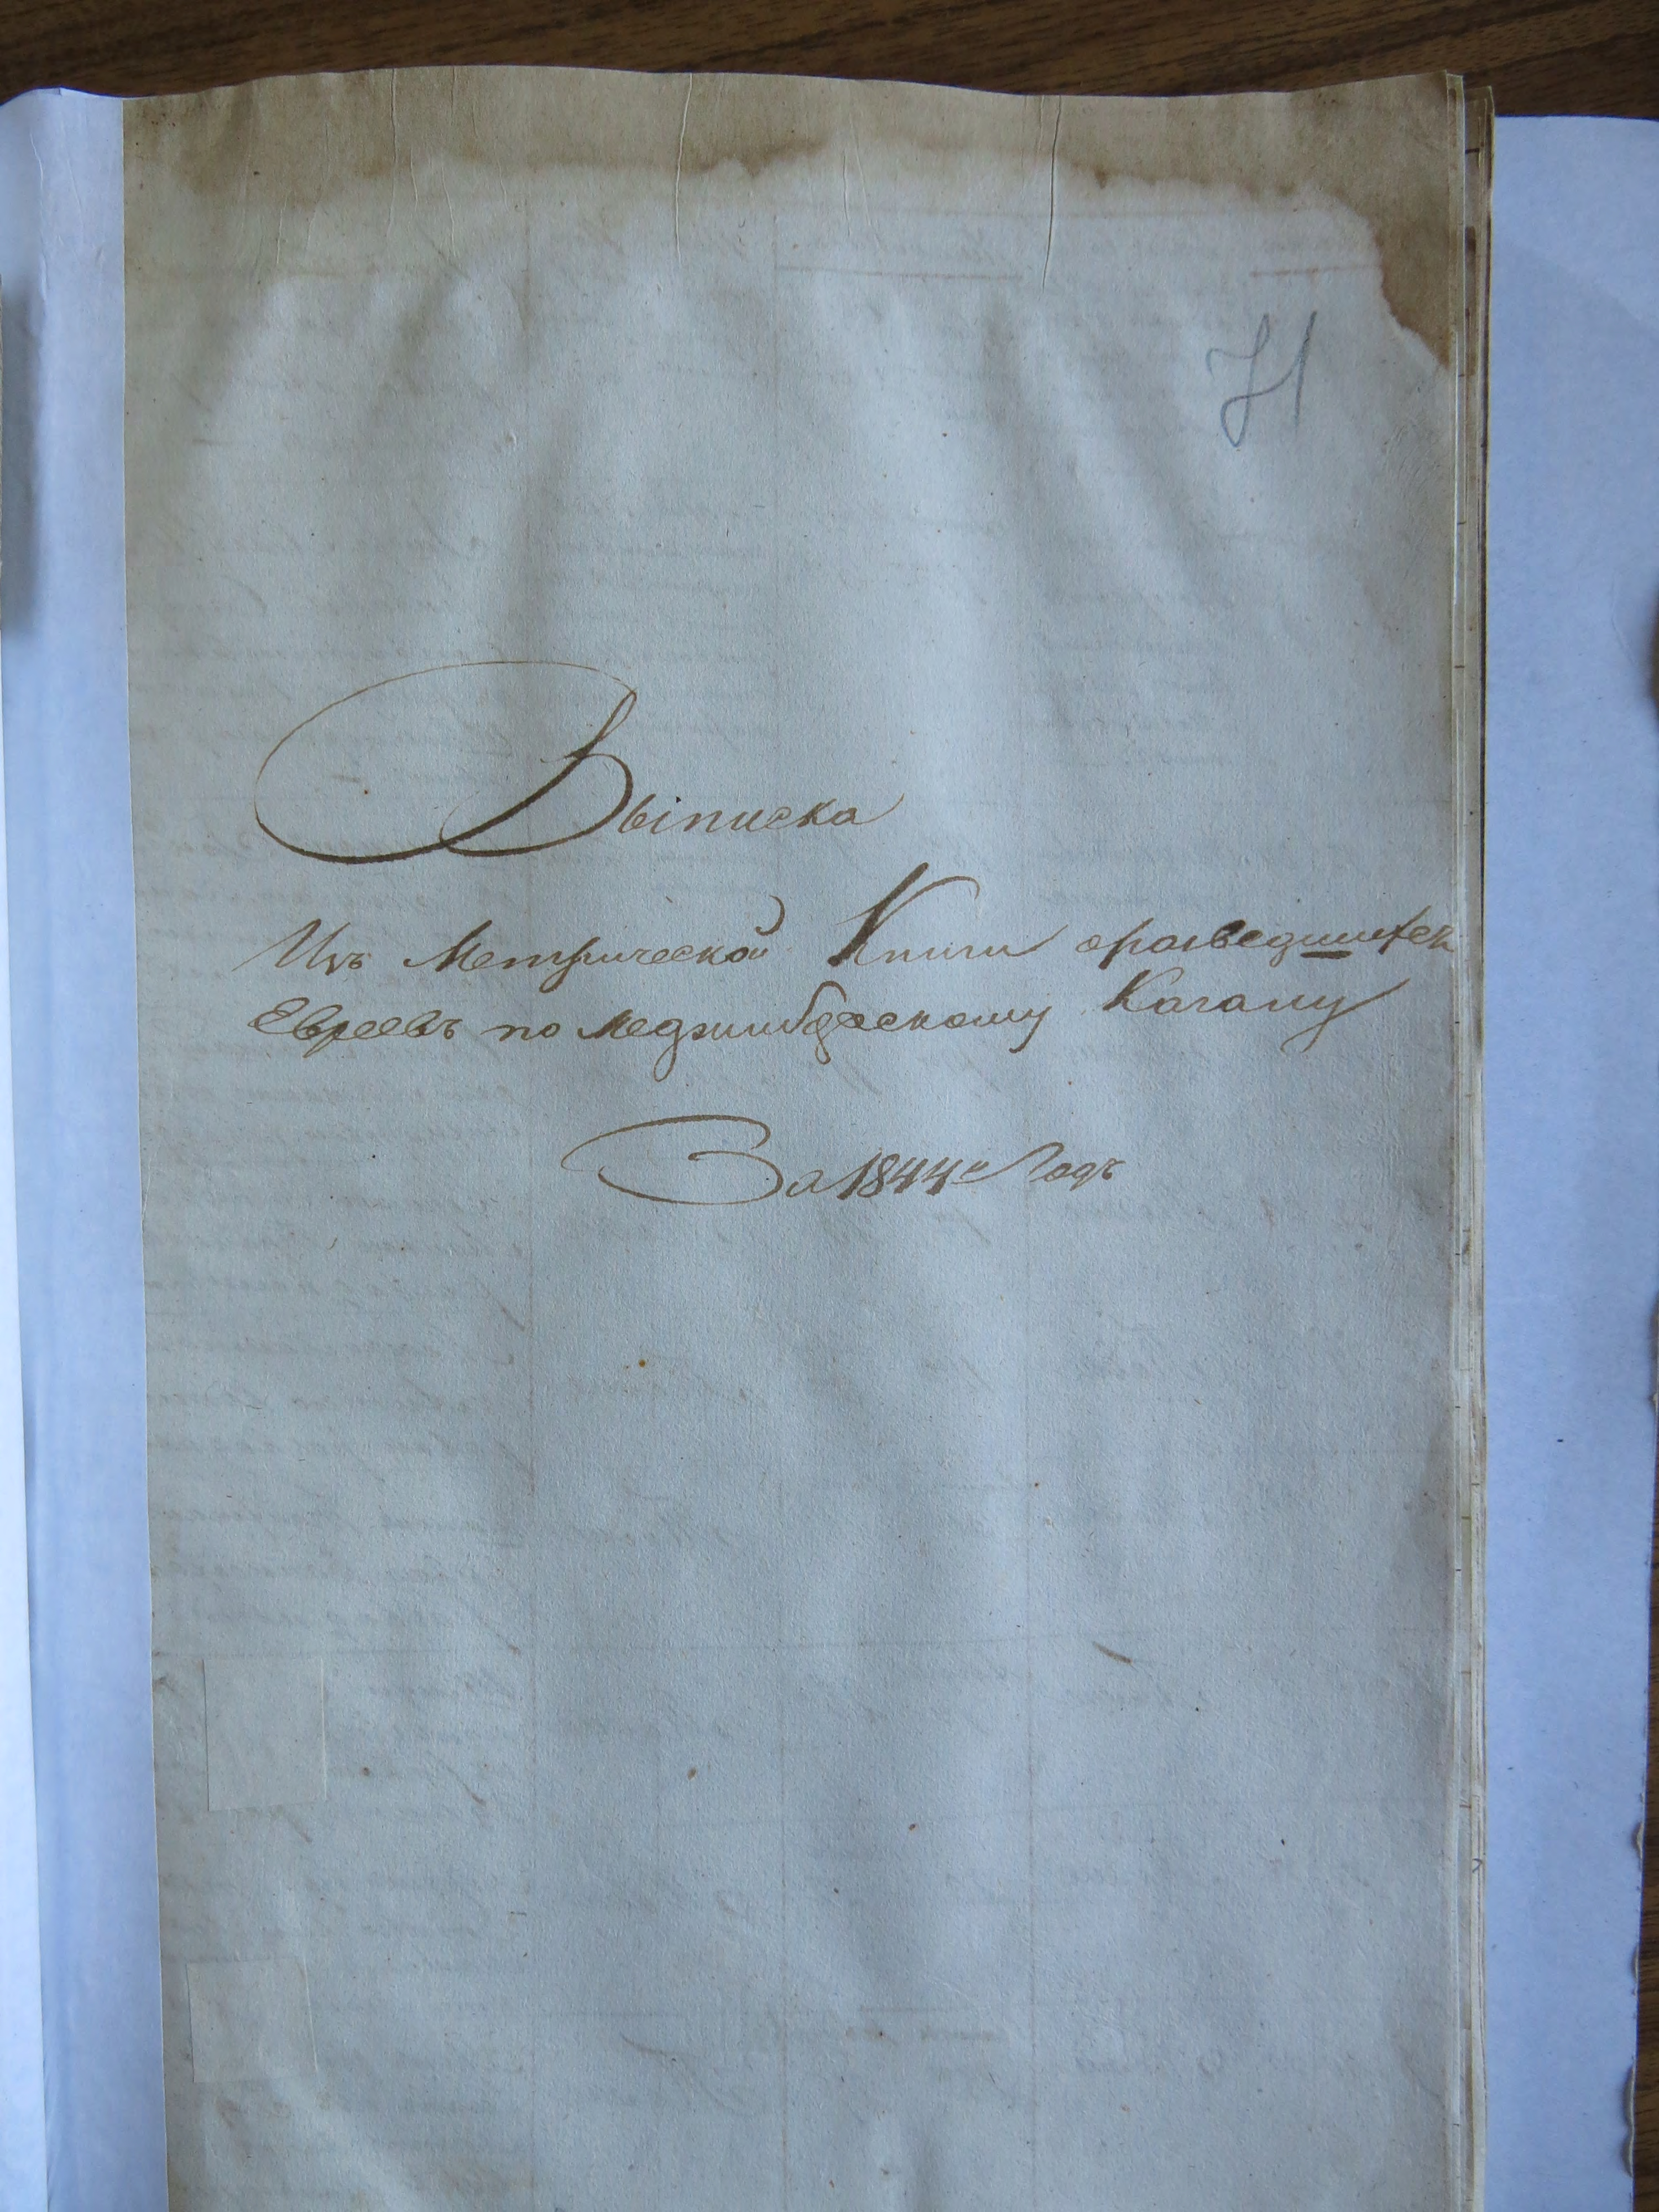 71
Выписка
Изъ Метрической Книги оразведшихся
Евреевъ по Меджибожскому Кагалу
За 1844й Годъ